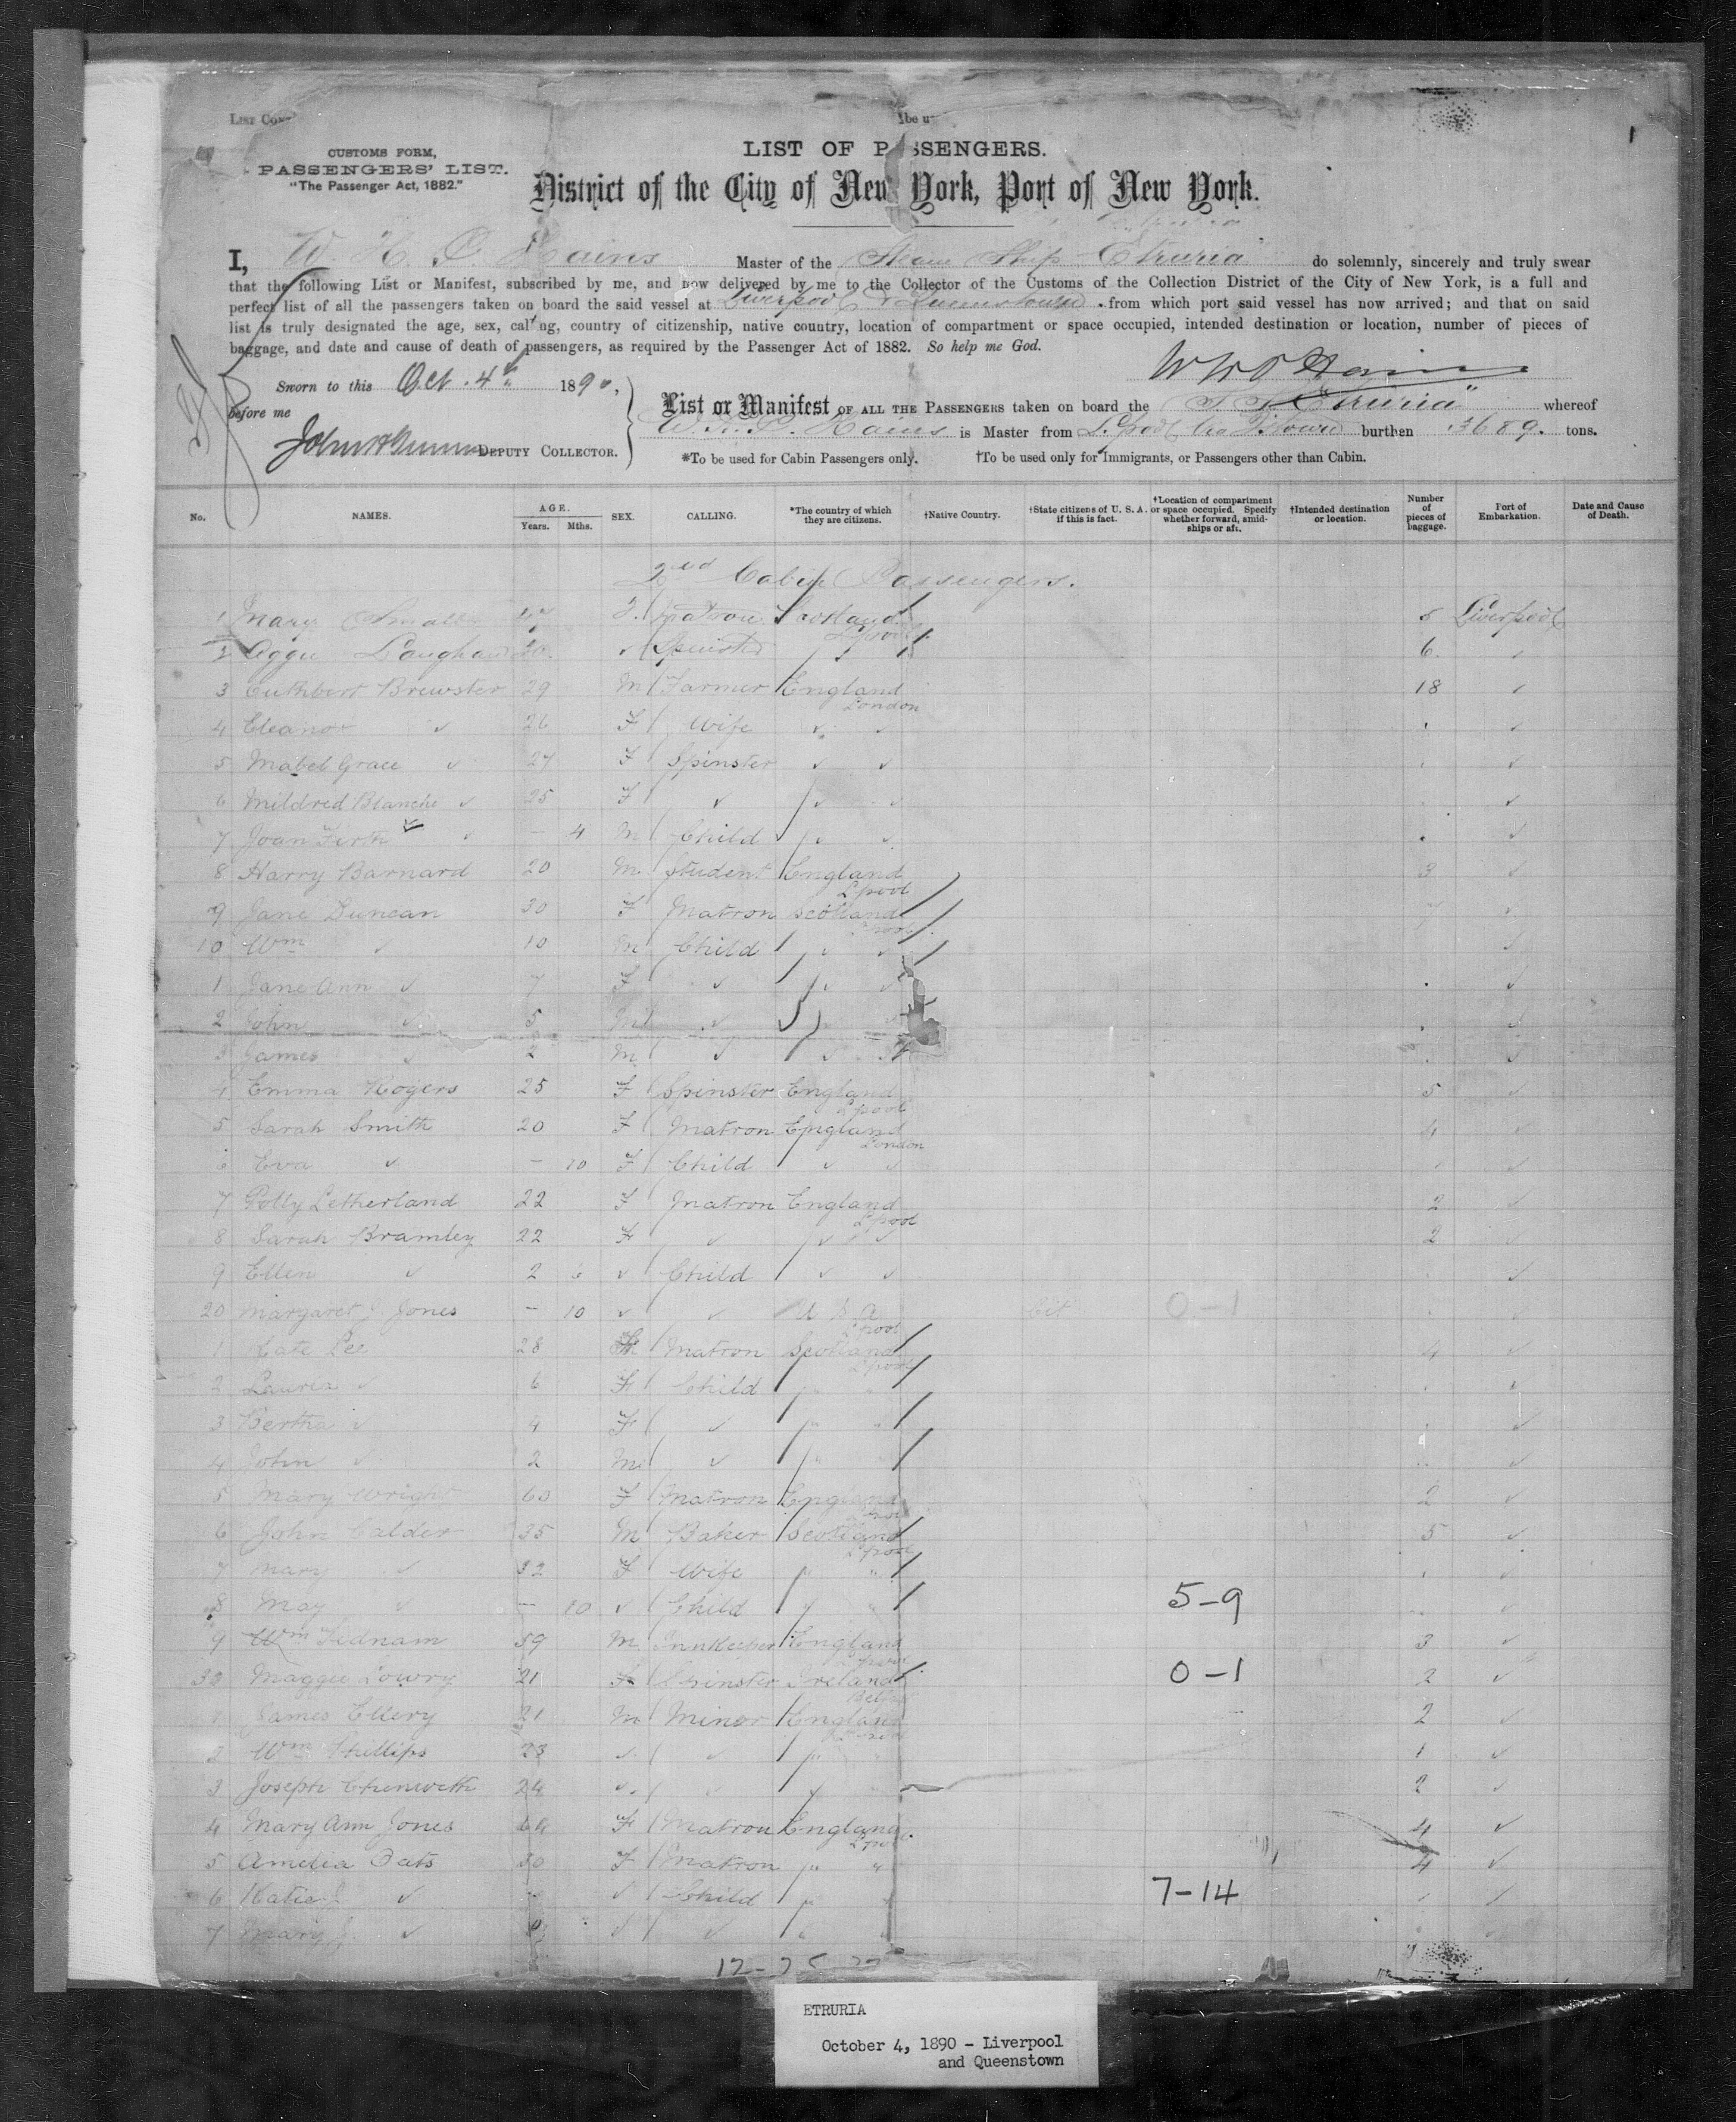 List Con
be u
1
CUSTOMS FORM,
PASSENGERS' LIST.
"The Passenger Act, 1882."
LIST OF PASSENGERS.
District of the City of New York, Port of New York.
I, W. H. P. Hains Master of the Steam Ship Etruria do solemnly, sincerely and truly swear
that the following List or Manifest, subscribed by me, and now delivered by me to the Collector of the Customs of the Collection District of the City of New York, is a full and
perfect list of all the passengers taken on board the said vessel at Liverpool & Queenstown from which port said vessel has now arrived; and that on said
list is truly designated the age, sex, calling, country of citizenship, native country, location of compartment or space occupied, intended destination or location, number of pieces of
baggage, and date and cause of death of passengers, as required by the Passenger Act of 1882. So help me God.
W H P Hains
Sworn to this Oct. 4th 1890,
before me
DEPUTY COLLECTOR.
List or Manifest OF ALL THE PASSENGERS taken on board the S. S. Etruria" whereof
W. H. P. Hains is Master from L'pool via Q'town burthen 3689. tons.
*To be used for Cabin Passengers only. †To be used only for Immigrants, or Passengers other than Cabin.
No. NAMES. AGE. Years. Mths. SEX. CALLING. *The country of which they are citizens. †Native Country. †State citizens of U. S. A. if this is fact. †Location of compartment or space occupied. Specify whether forward, amidships or aft. †Intended destination or location. Number of pieces of baggage. Port of Embarkation. Date and Cause of Death.
2nd Cabin Passengers.
1 Mary Small F. Matron Scotland L'pool 5 Liverpool
2 Aggie 20 ✓ Spinster 6 ✓
3 Cuthbert Brewster 29 M Farmer England London 18 ✓
4 Eleanor ✓ 26 F Wife ✓ ✓ ✓
5 Mabel Grace ✓ 27 F Spinster ✓ ✓ ✓
6 Mildred Blanche ✓ 25 F ✓ ✓ ✓ ✓
7 Joan Firth ✓ – 4 M Child ✓ ✓ ✓
8 Harry Barnard 20 M Student England L'pool 3 ✓
9 Jane Duncan 30 F Matron Scotland L'pool 7 ✓
10 Wm ✓ 10 M Child ✓ ✓ ✓
1 Jane Ann ✓ 7 F ✓ ✓ ✓ ✓
2 John ✓ 5 M ✓ ✓ ✓
3 James ✓ 2 M ✓ ✓ ✓
4 Emma Rogers 25 F Spinster England L'pool 5 ✓
5 Sarah Smith 20 F Matron England London 4 ✓
6 Eva ✓ – 10 F Child ✓ ✓ ✓
7 Polly Letherland 22 F Matron England L'pool 2 ✓
8 Sarah Bramley 22 F ✓ ✓ ✓ 2 ✓
9 Ellen ✓ 2 6 ✓ Child ✓ ✓ ✓
20 Margaret J Jones – 10 ✓ ✓ U S A L'pool Cit 0–1 ✓
1 Kate Lee 28 F Matron Scotland L'pool 4 ✓
2 Lauria ✓ 6 F Child " " ✓
3 Bertha ✓ 4 F ✓ " " ✓
4 John ✓ 2 M ✓ " " ✓
5 Mary Wright 60 F Matron England L'pool 2 ✓
6 John Calder 35 M Baker Scotland L'pool 5 ✓
7 Mary ✓ 32 F Wife " " ✓
8 May ✓ – 10 ✓ Child " " 5–9 ✓
9 Wm Sidnam 59 M Innkeeper England L'pool 3 ✓
30 Maggie Lowry 21 F Spinster Ireland Belfast 0–1 2 ✓
1 James Ellery 21 M Minor England 2 ✓
2 Wm Phillips 23 ✓ ✓ " " 1 ✓
3 Joseph Chenwith 24 ✓ " 2 ✓
4 Mary Ann Jones F Matron England L'pool 4 ✓
5 Amelia Oats 30 F Matron " " 4 ✓
6 Katie J ✓ – ✓ Child " " 7–14 ✓
7 Mary J ✓ ✓ ✓ "
ETRURIA
October 4, 1890 – Liverpool
and Queenstown